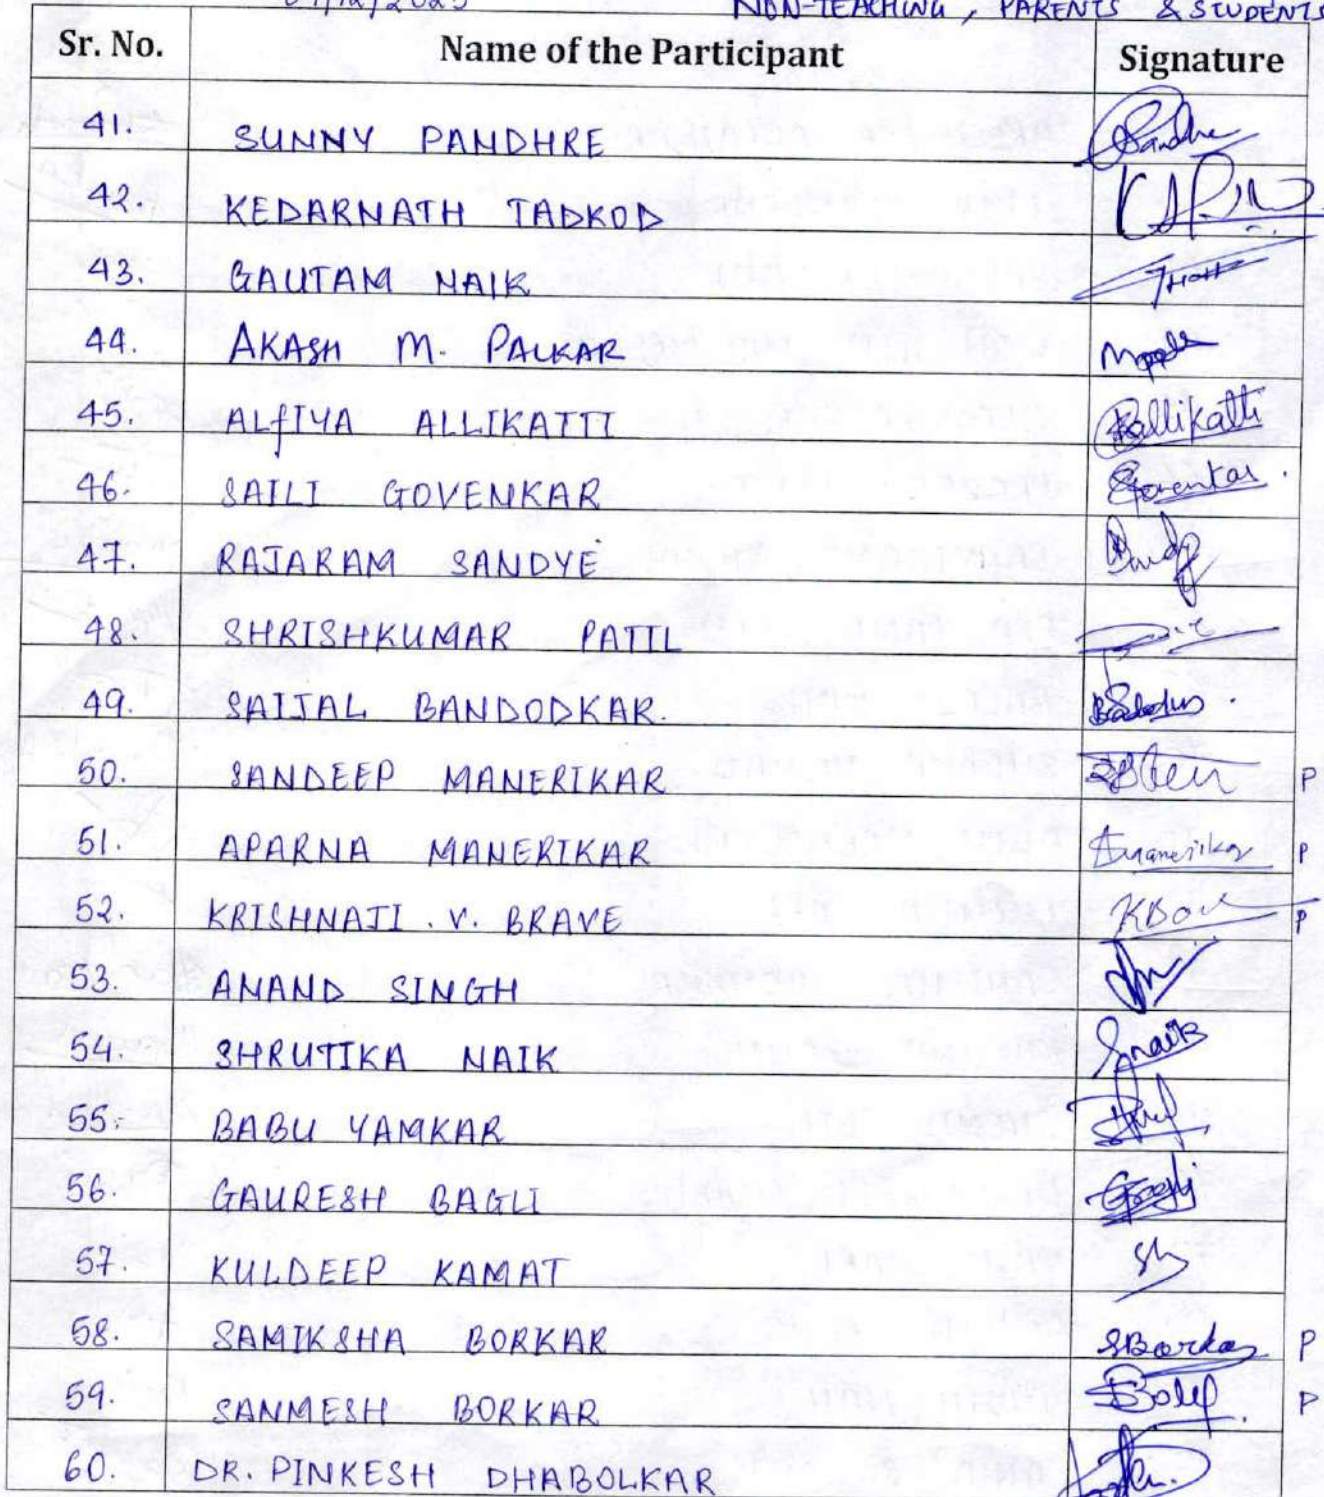 NON-TEACHING, PARENTS & STUDENTS
Sr. No. Name of the Participant Signature
41. SUNNY PANDHRE
42. KEDARNATH TADKOD
43. GAUTAM NAIK
44. AKASH M. PALKAR
45. ALFIYA ALLIKATTI Allikatti
46. SAILI GOVENKAR
47. RAJARAM SANDYE
48. SHRISHKUMAR PATIL
49. SAIJAL BANDODKAR.
50. SANDEEP MANERIKAR P
51. APARNA MANERIKAR Amanerikar P
52. KRISHNAJI . V. BRAVE P
53. ANAND SINGH
54. SHRUTIKA NAIK Snaik
55. BABU YAMKAR
56. GAURESH BAGLI
57. KULDEEP KAMAT
58. SAMIKSHA BORKAR SBorkar P
59. SANMESH BORKAR P
60. DR. PINKESH DHABOLKAR